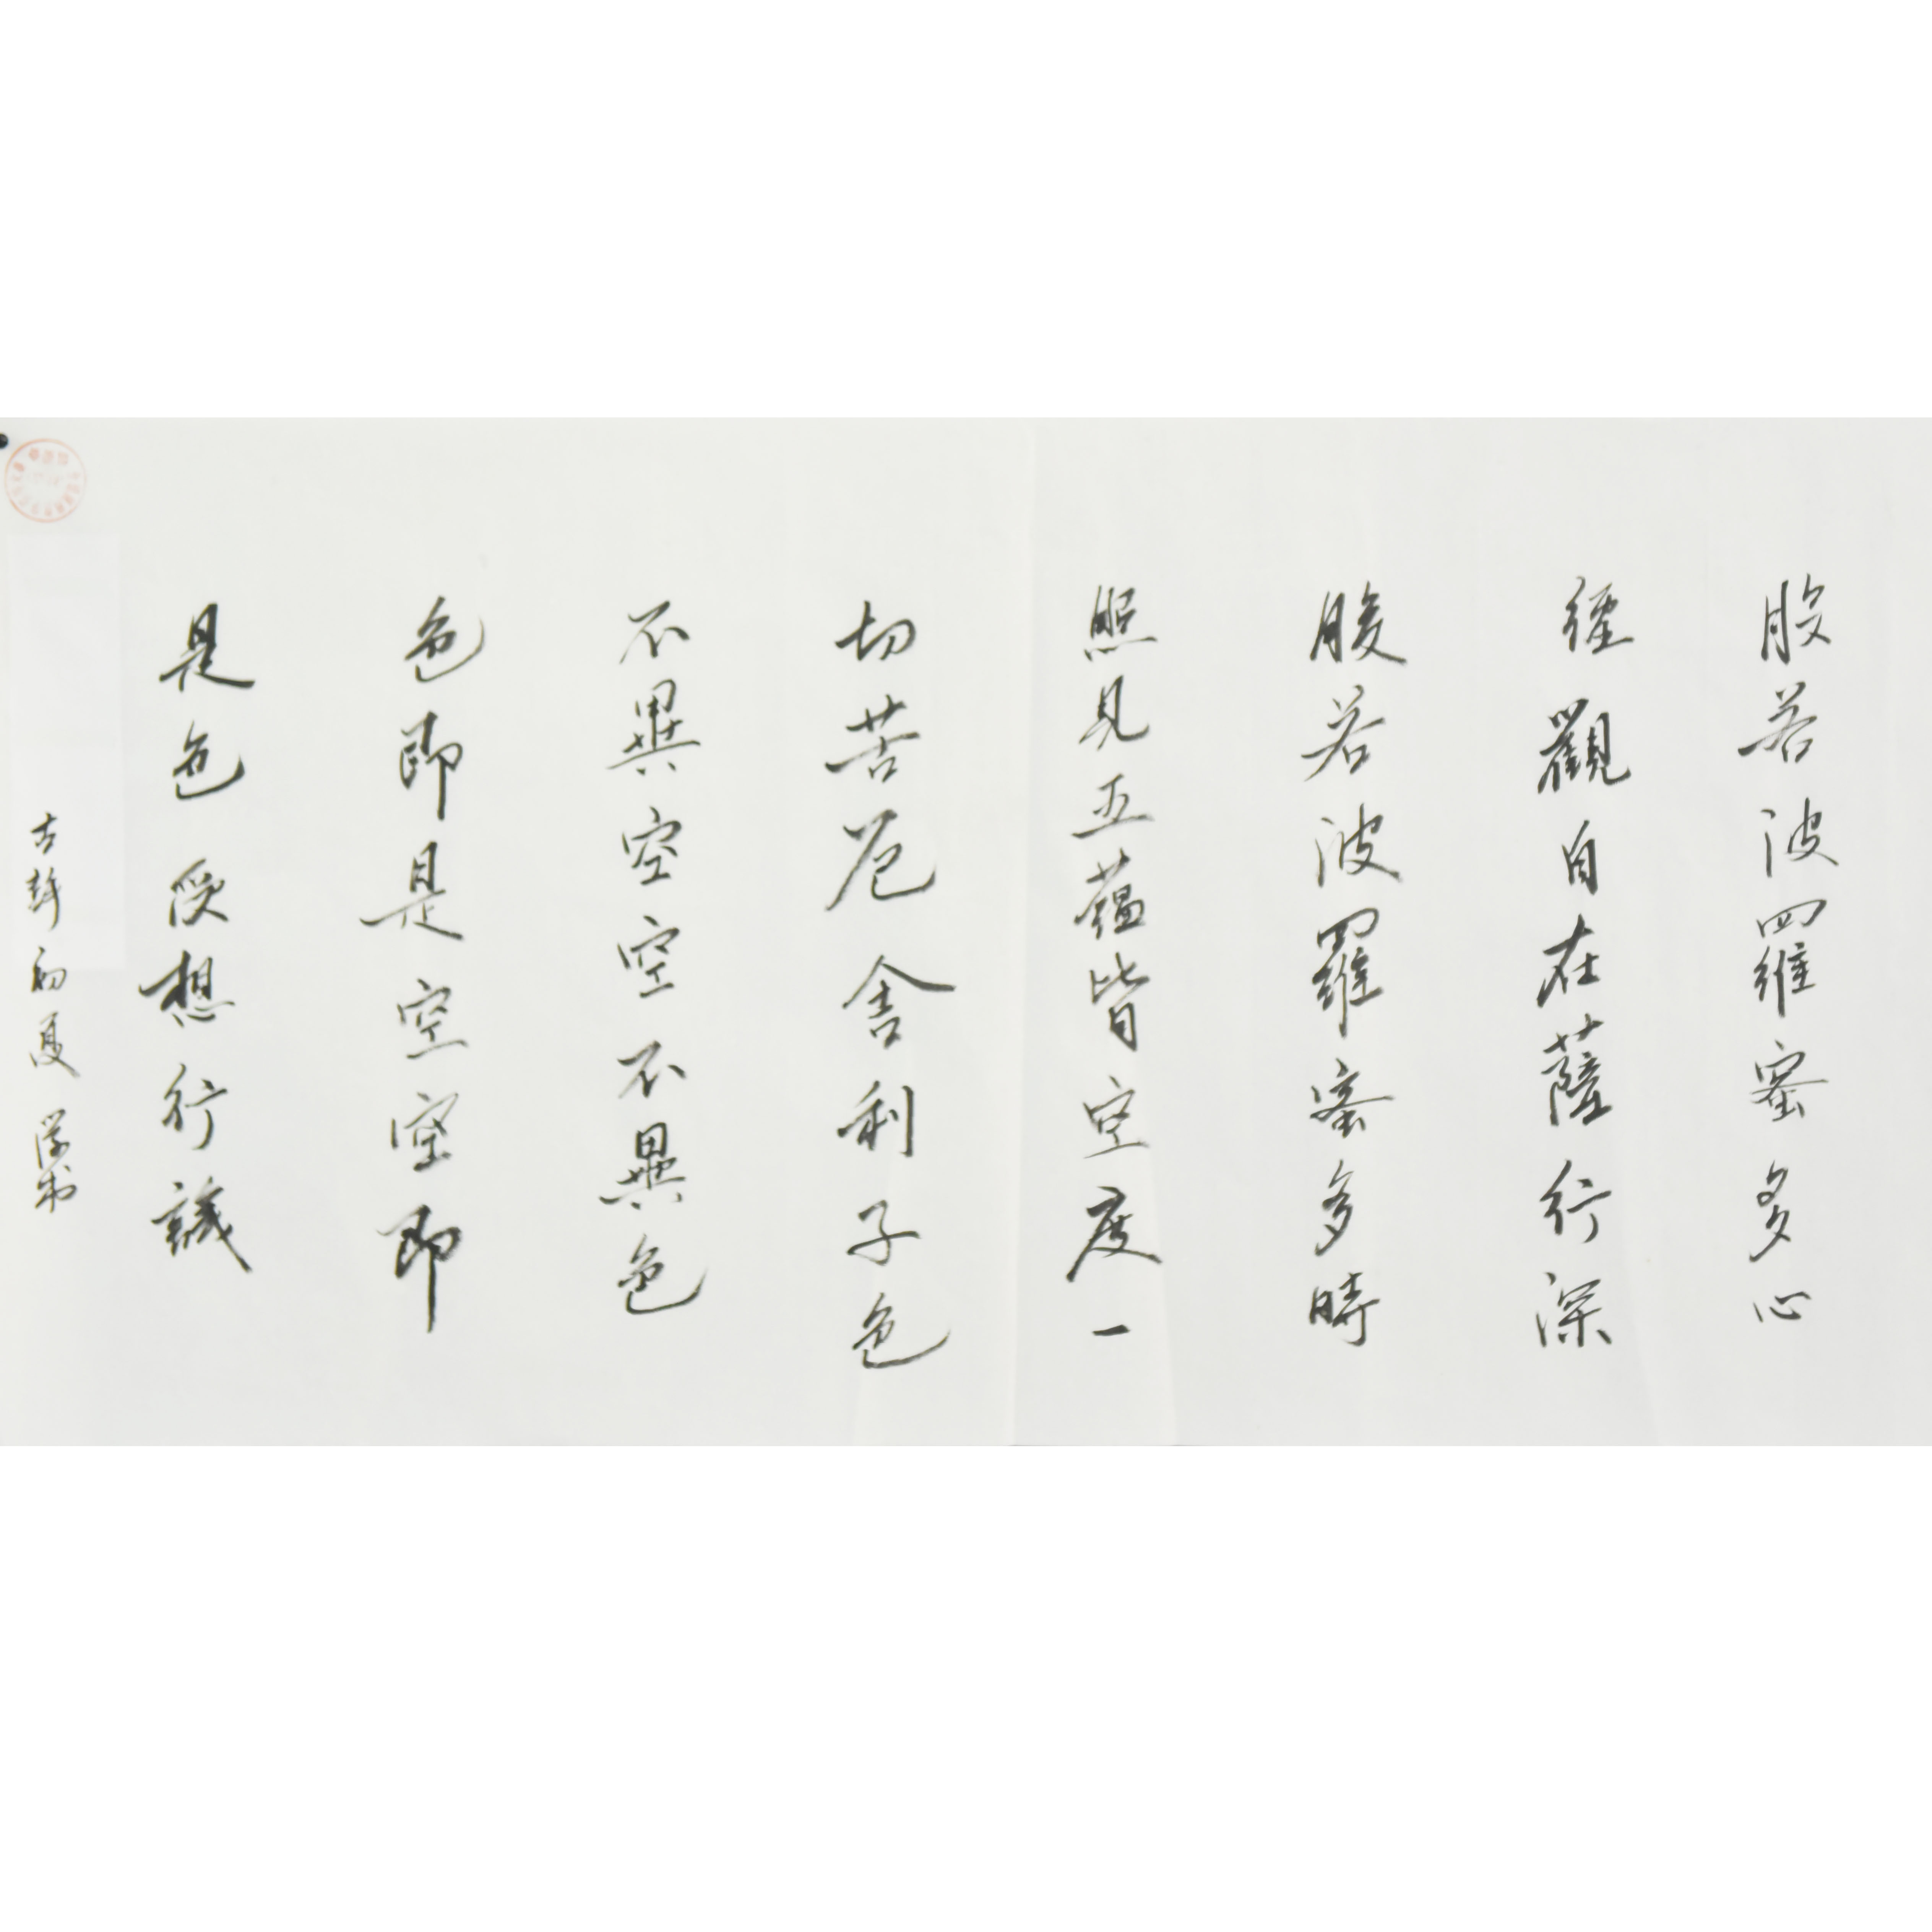 般若波羅蜜多心
經觀自在薩行深
般若波羅蜜多時
照見五蘊皆空度一
切苦厄舍利子色
不異空空不異色
色即是空空即
是色受想行識
初夏